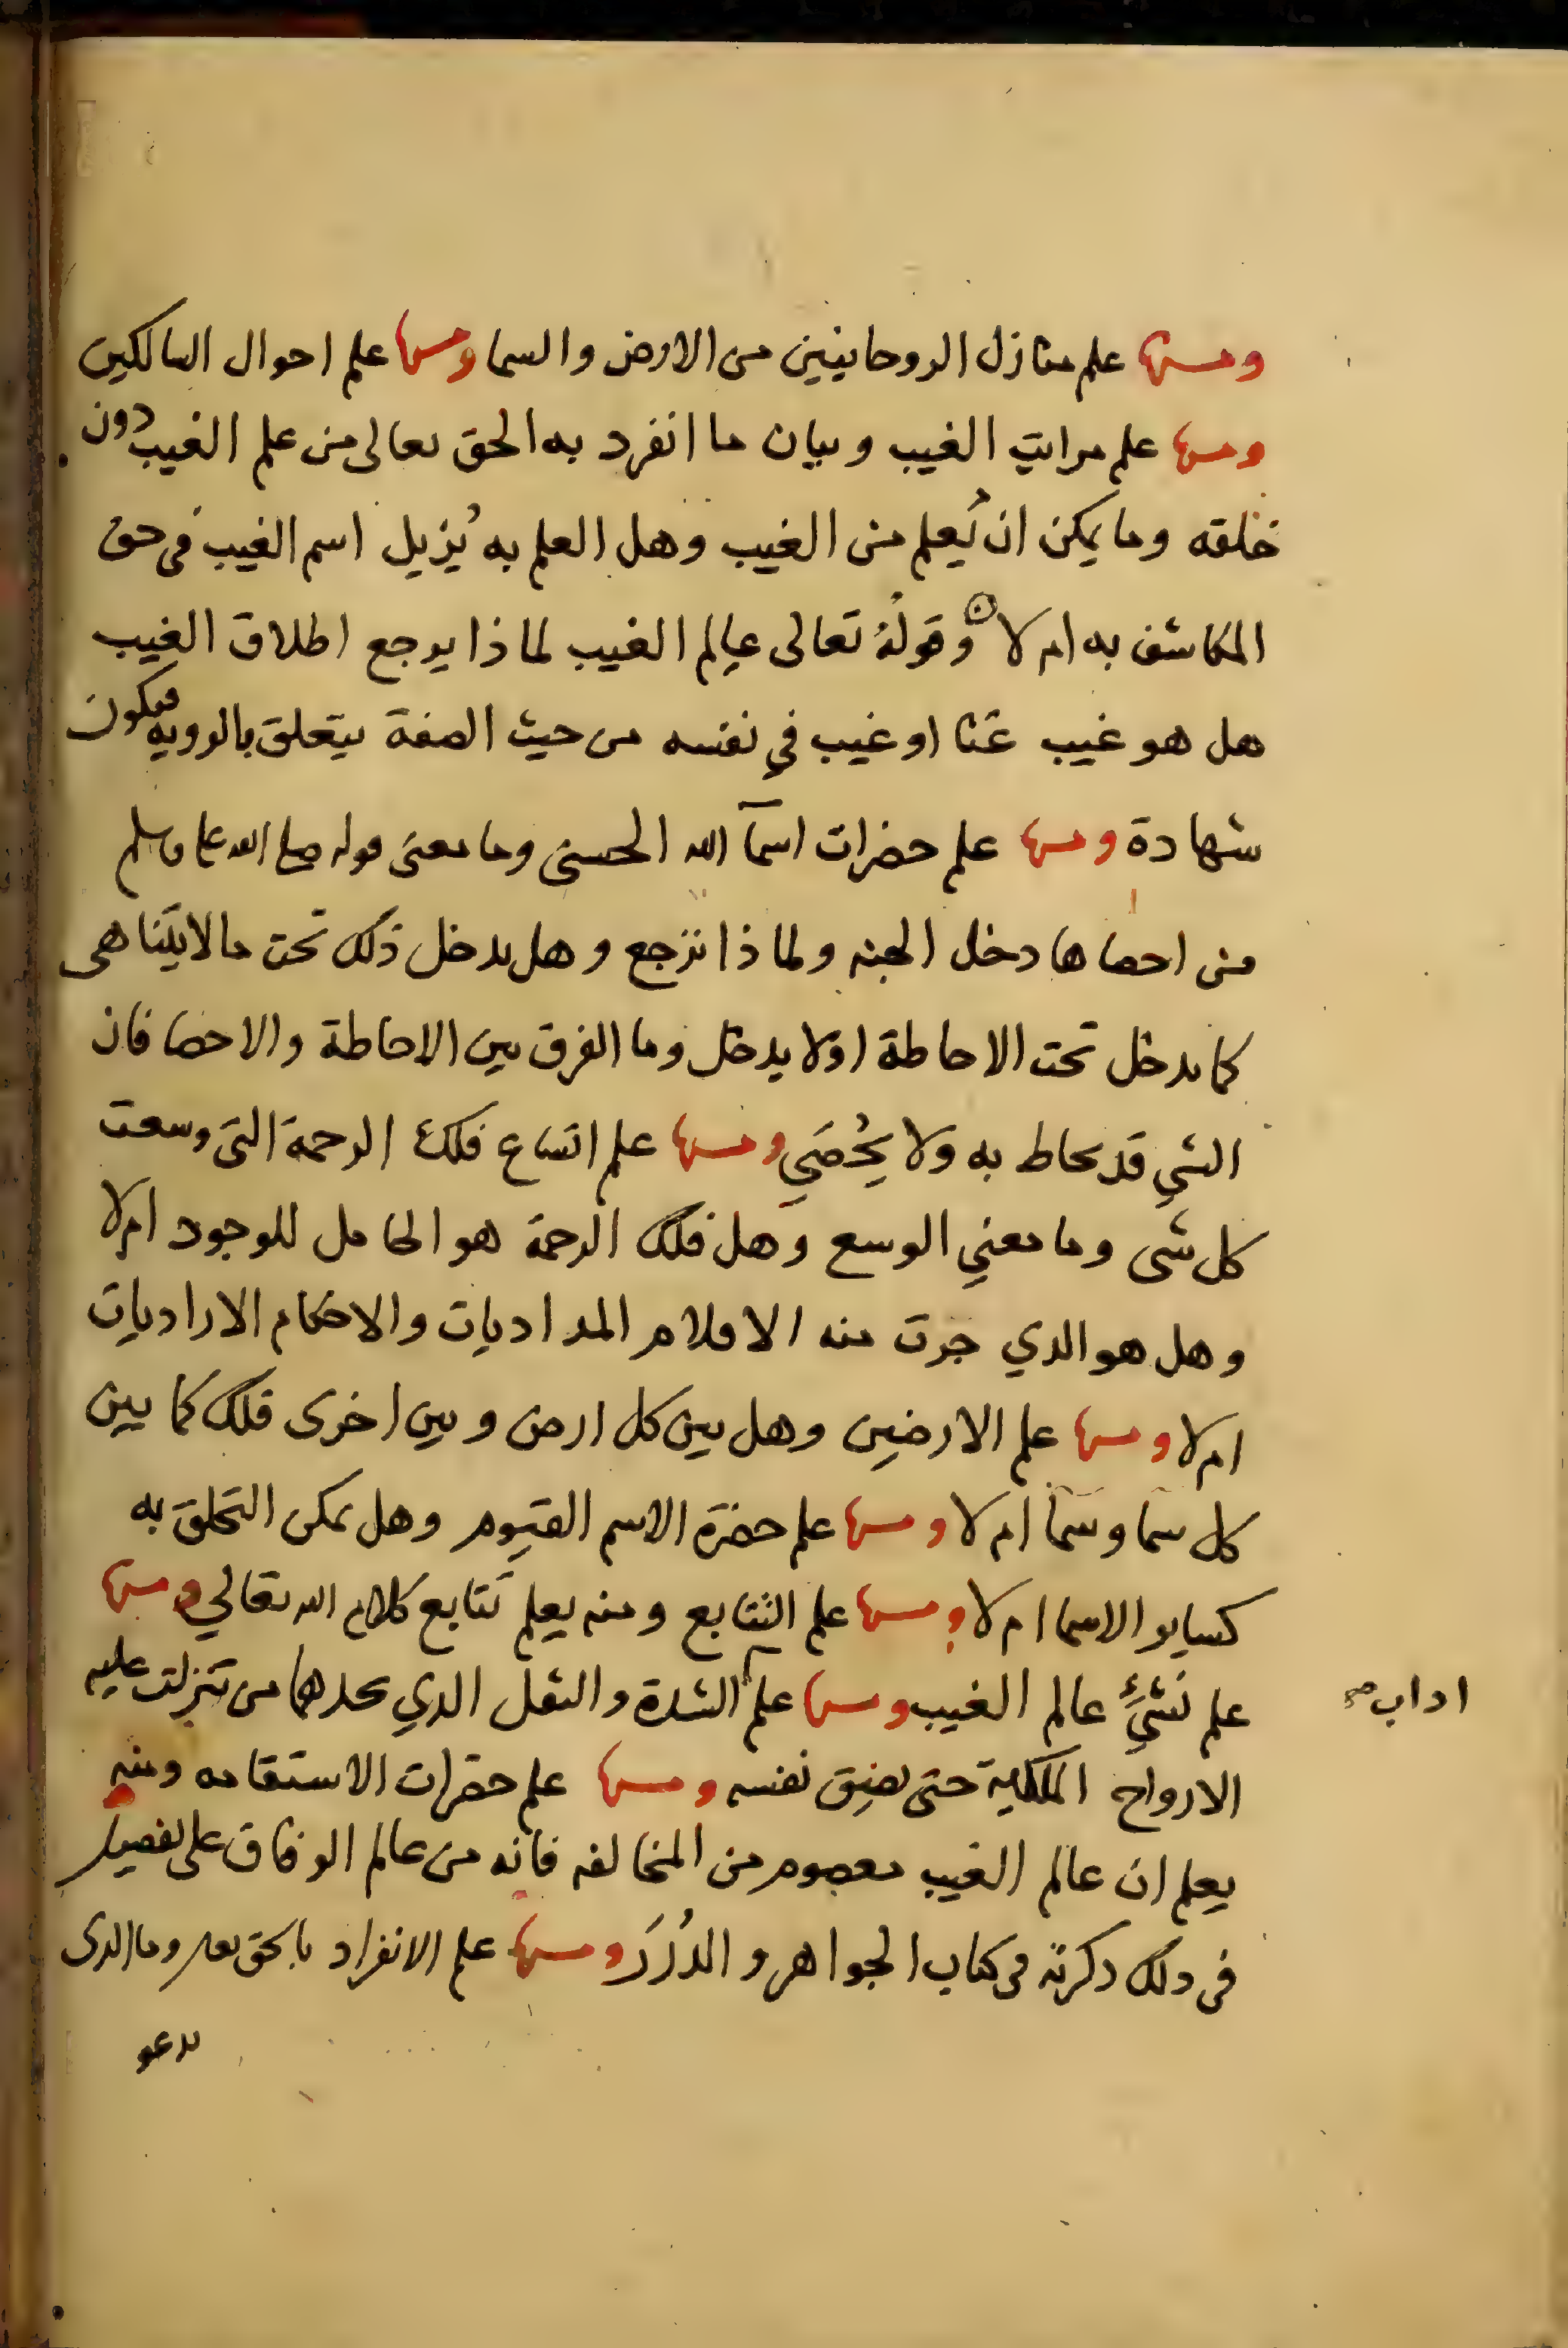 ومنها علم منازل الروحانيين من الارض والسما ومنها علم احوال السالكين
ومنها علم مراتب الغيب وبيان ما انفرد به الحق تعالى من علم الغيب دون
خلقه وما يمكن ان يُعلم من الغيب وهل العلم به يُزيل اسم الغيب في حق
المكاشف به ام لا وقولهُ تعالى عالم الغيب لماذا يرجع اطلاق الغيب
هل هو غيب عَنا او غيب في نفسه من حيث الصفة يتعلق بالرويه فيكون
شهادة ومنها علم حضرات اسمآ الله الحسنى وما معنى قوله صلى الله عليه وسلم
من احصاها دخل الجنه ولماذا ترجع وهل يدخل ذلك تحت ما لا يتناهى
كما يدخل تحت الاحاطة اولا يدخل وما الفرق بين الاحاطة والاحصا فان
الشي قد يحاط به ولا يُحْصَى ومنها علم اتساع فلك الرحمة التي وسعت
كل شى وما معني الوسع وهل فلك الرحمة هو الحامل للوجود ام لا
وهل هو الدي جرت منه الاقلام المداديات والاحكام الاراديات
ام لا ومنها علم الارضين وهل بين كل ارض وبين اخرى فلك كما بين
كل سما وسمآ ام لا ومنها علم حضرة الاسم القيوم وهل يمكن التخلق به
كساير الاسما ام لا ومنها علم التتابع ومنه يعلم تتابع كلام الله تعالي ومنها
علم نشئ عالم الغيب ومنها علم الشدة والثقل الدي يجدهما من تتنزلت عليه
اداب صح
الارواح الملكية حتى يضيق نفسه ومنها علم حضرات الاستقامه ومنه
يعلم ان عالم الغيب معصوم من المخالفه فانه من عالم الوفاق على تفصيل
في دلك دكرته في كتاب الجواهر والدُررَ ومنها علم الانفراد بالحق تعلى وما الدى
يدعو